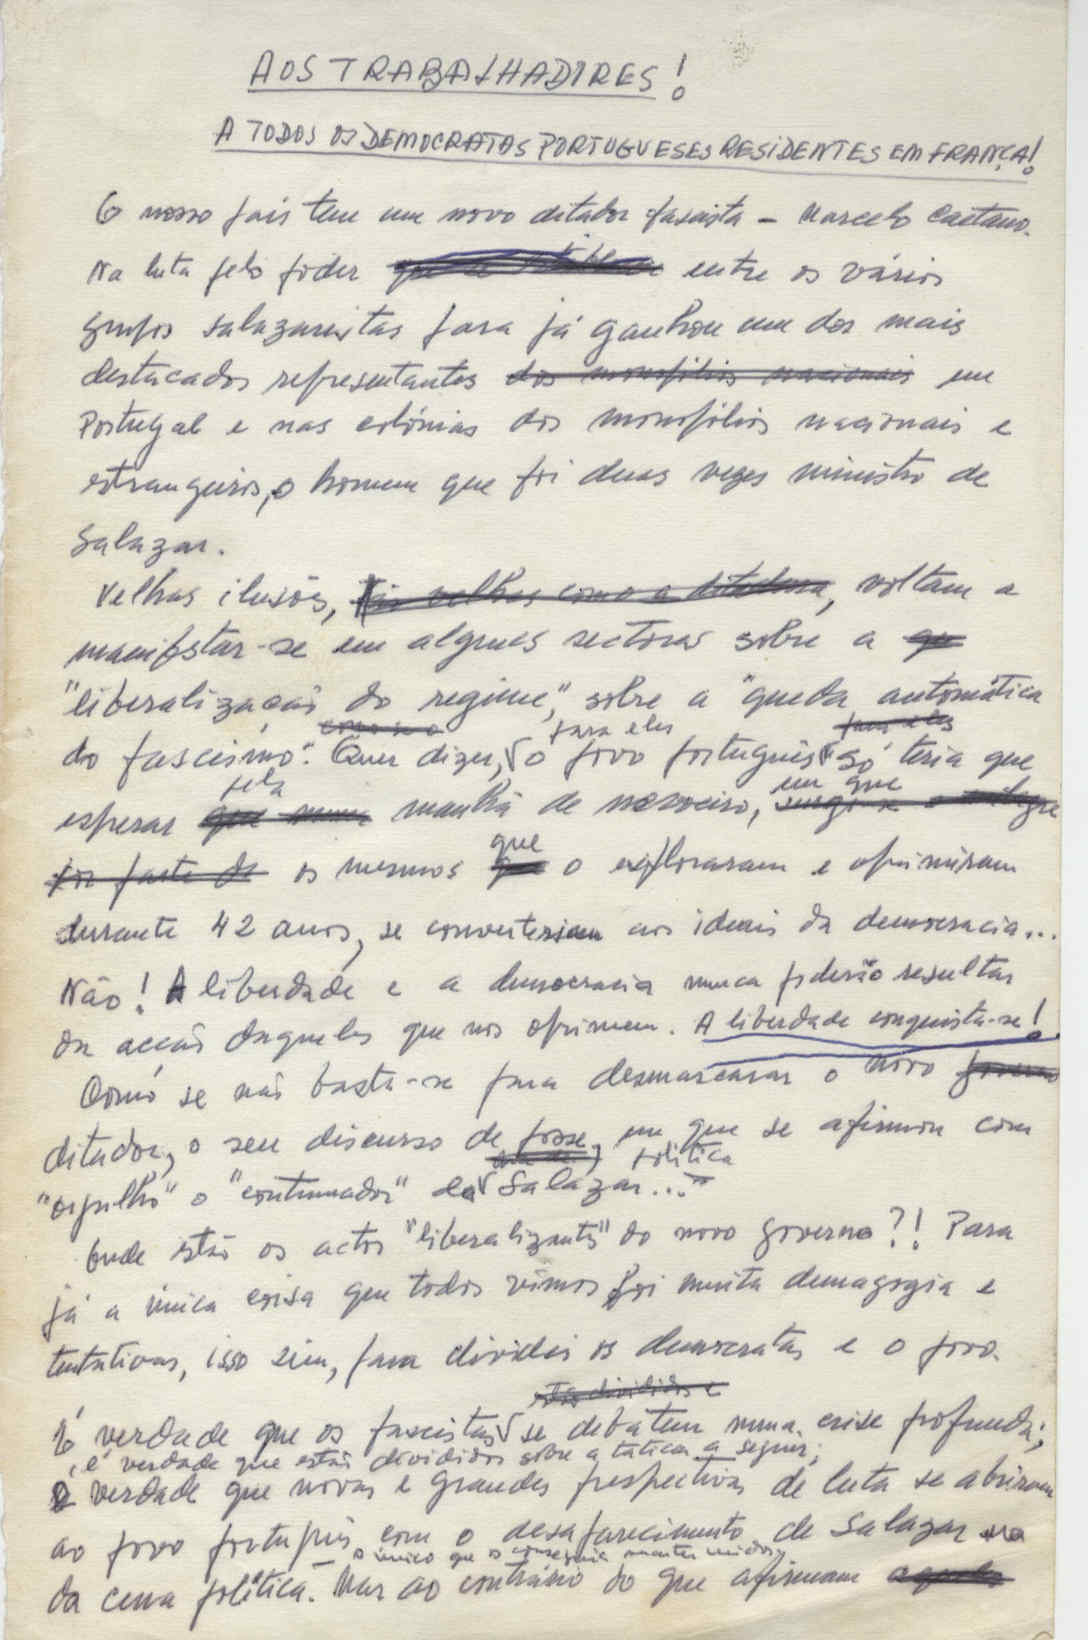 AOS TRABALHADORES!
A TODOS OS DEMOCRATAS PORTUGUESES RESIDENTES EM FRANÇA!
O nosso país tem um novo ditador fascista - Marcelo Caetano.
Na luta pelo poder entre os vários
grupos salazaristas para já ganhou um dos mais
destacados representantes dos monopólios nacionais em
Portugal e nas colónias dos monopólios nacionais e
estrangeiros, o homem que foi duas vezes ministro de
Salazar.
Velhas ilusões, tão velhas como a ditadura, voltam a
manifestar-se em alguns sectores sobre a que
"liberalização do regime", sobre a "queda automática
como se o para eles para eles
do fascismo". Quer dizer, o povo português só teria que
pela em que
esperar que numa manhã de nevoeiro, surgisse o milagre
que
por parte de os mesmos que o exploraram e oprimiram
durante 42 anos, se converteriam aos ideais da democracia...
Não! A liberdade e a democracia nunca poderão resultar
da acção daqueles que nos oprimem. A liberdade conquista-se!
Como se não basta-se para desmascarar o novo governo
ditador, o seu discurso de posse, em que se afirmou com
política
"orgulho" o "continuador" da Salazar..."
Onde estão os actos "liberalizantes" do novo governo?! Para
já a única coisa que todos vimos foi muita demagogia e
tentativas, isso sim, para dividir os democratas e o povo.
estão divididos e
É verdade que os fascistas se debatem numa crise profunda;
é verdade que estão divididos sobre a tática a seguir;
é verdade que novas e grandes perspectivas de luta se abriram
ao povo português com o desaparecimento de Salazar
o único que os conseguia manter unidos
da cena política. Mas ao contrário do que afirmam